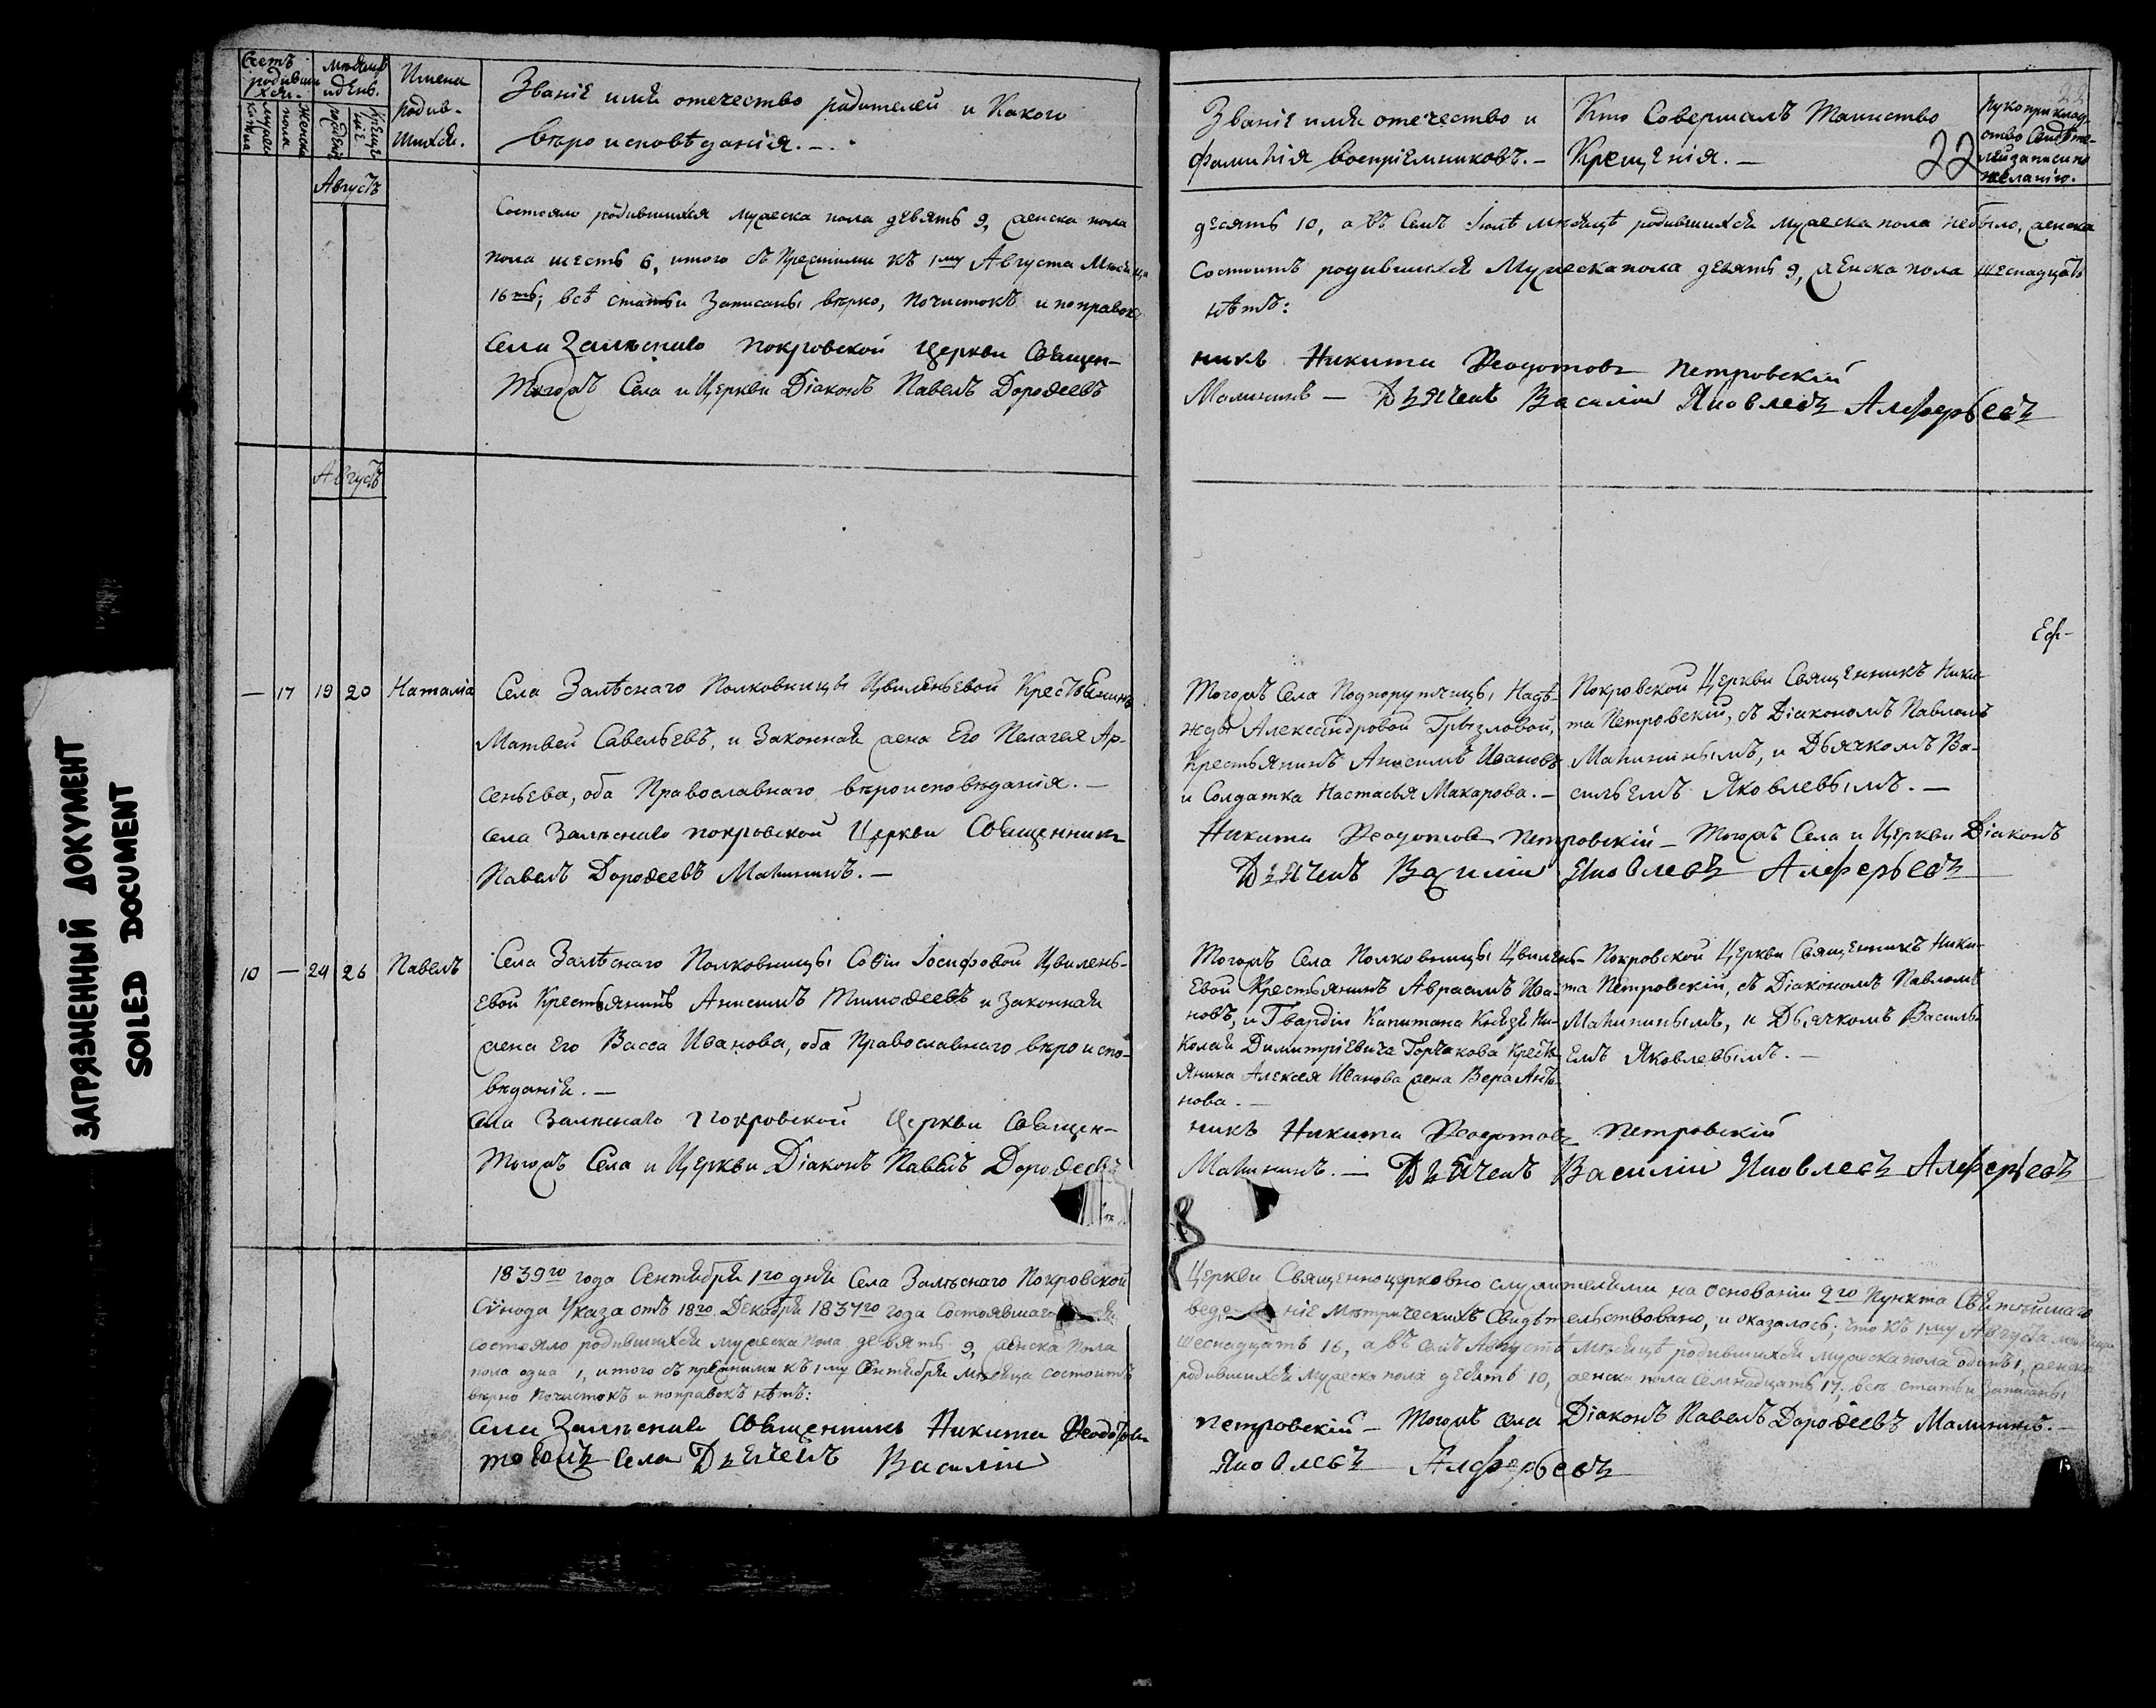 ЗАГРЯЗНЕННЫЙ ДОКУМЕНТ
SOILED DOCUMENT
Счетъ родившихся.
Мѣсяцъ и день.
Имена родившихся.
Званіе имя отечество родителей и какого
вѣроисповѣданія.
Августъ
Состояло родившихся мужеска пола девять 9, женска пола
пола шесть 6, итого съ прежними къ 1му Августа Мѣсяца
16ть; всѣ статьи записаны вѣрно, почистокъ и поправокъ
Села Залѣснаго покровской Церкви Священ-
Тогожъ Села и Церкви Діаконъ Павелъ Дороѳеевъ
Августъ
— 17 19 20 Наталіа Села Залѣснаго Полковницы Цвиленьевой Крестьянинъ
Матвей Савельевъ, и Законная жена Его Пелагея Ар-
сеньева, оба Православнаго вѣроисповѣданія. —
Села Залѣснаго покровской Церкви Священникъ
Павелъ Дороѳеевъ Малининъ. —
10 — 24 26 Павелъ Села Залѣснаго Полковницы Софіи Іосифовой Цвилень-
евой Крестьянинъ Анисимъ Тимоѳеевъ и Законная
жена Его Васса Иванова, оба Православнаго вѣроиспо-
вѣданія. —
Села Залѣснаго Покровской Церкви Священ-
Тогожъ Села и Церкви Діаконъ Павелъ Дороѳеевъ
1839го года Сентября 1го дня Села Залѣснаго Покровской
Сѵнода Указа отъ 18го Декабря 1837го года Состоявшаго
состояло родившихся мужеска пола девять 9, женска пола
пола одна 1, итого съ прежними къ 1му Сентября мѣсяца состоитъ
вѣрно почистокъ и поправокъ нѣтъ:
Села Залѣснаго Священникъ Никита Ѳеодотовъ
тогожъ Села Дьячекъ Василій
Званіе имя отечество и
фамилія воспріемниковъ. —
Кто Совершалъ Таинство
Крещенія. —
22
22
Рукоприклад-
ство Свидѣте-
лей записи по
желанію.
десять 10, а въ Семъ Іюлѣ мѣсяцѣ родившихся мужеска пола небыло, женска
Состоитъ родившихся Мужеска пола девять 9, женска пола шеснадцать
нѣтъ:
никъ Никита Ѳеодотовъ Петровскій
Малининъ — Дьячекъ Василій Яковлевъ Алферьевъ
Еф-
Тогожъ Села Подпорутчицы, Надѣ-
жды Александровой Грызловой,
Крестьянинъ Анисимъ Ивановъ
и Солдатка Настасья Макарова. —
Покровской Церкви Священникъ Ники-
та Петровскій, съ Діакономъ Павломъ
Малининымъ, и Дьячкомъ Ва-
сильемъ Яковлевымъ. —
Никита Ѳеодотовъ Петровскій — Тогожъ Села и Церкви Діаконъ
Дьячекъ Василій Яковлевъ Алферьевъ
Тогожъ Села Полковницы Цвилень-
евой Крестьянинъ Авраамъ Ива-
новъ, и Гвардіи Капитана Князя Ни-
колая Димитріевича Горчакова Кресть-
янина Алексея Иванова жена Вера Анто-
нова. —
Покровской Церкви Священникъ Ники-
та Петровскій, съ Діакономъ Павломъ
Малининымъ, и Дьячкомъ Василь-
емъ Яковлевымъ. —
никъ Никита Ѳеодотовъ Петровскій
Малининъ. — Дьячекъ Василій Яковлевъ Алферьевъ
Церкви Священноцерковнослужителями на основаніи 2го Пункта Святѣйшаго
веденіе Метрическихъ Свидѣтельствовано, и оказалось; что къ 1му Августа мѣсяца
шеснадцать 16, а въ семъ Августѣ мѣсяцѣ родившихся мужеска пола одинъ 1, женска
родившихся мужеска пола десять 10, женска пола семнадцать 17; всѣ статьи записаны
Петровскій — Тогожъ Села Діаконъ Павелъ Дороѳеевъ Малининъ. —
Яковлевъ Алферьевъ